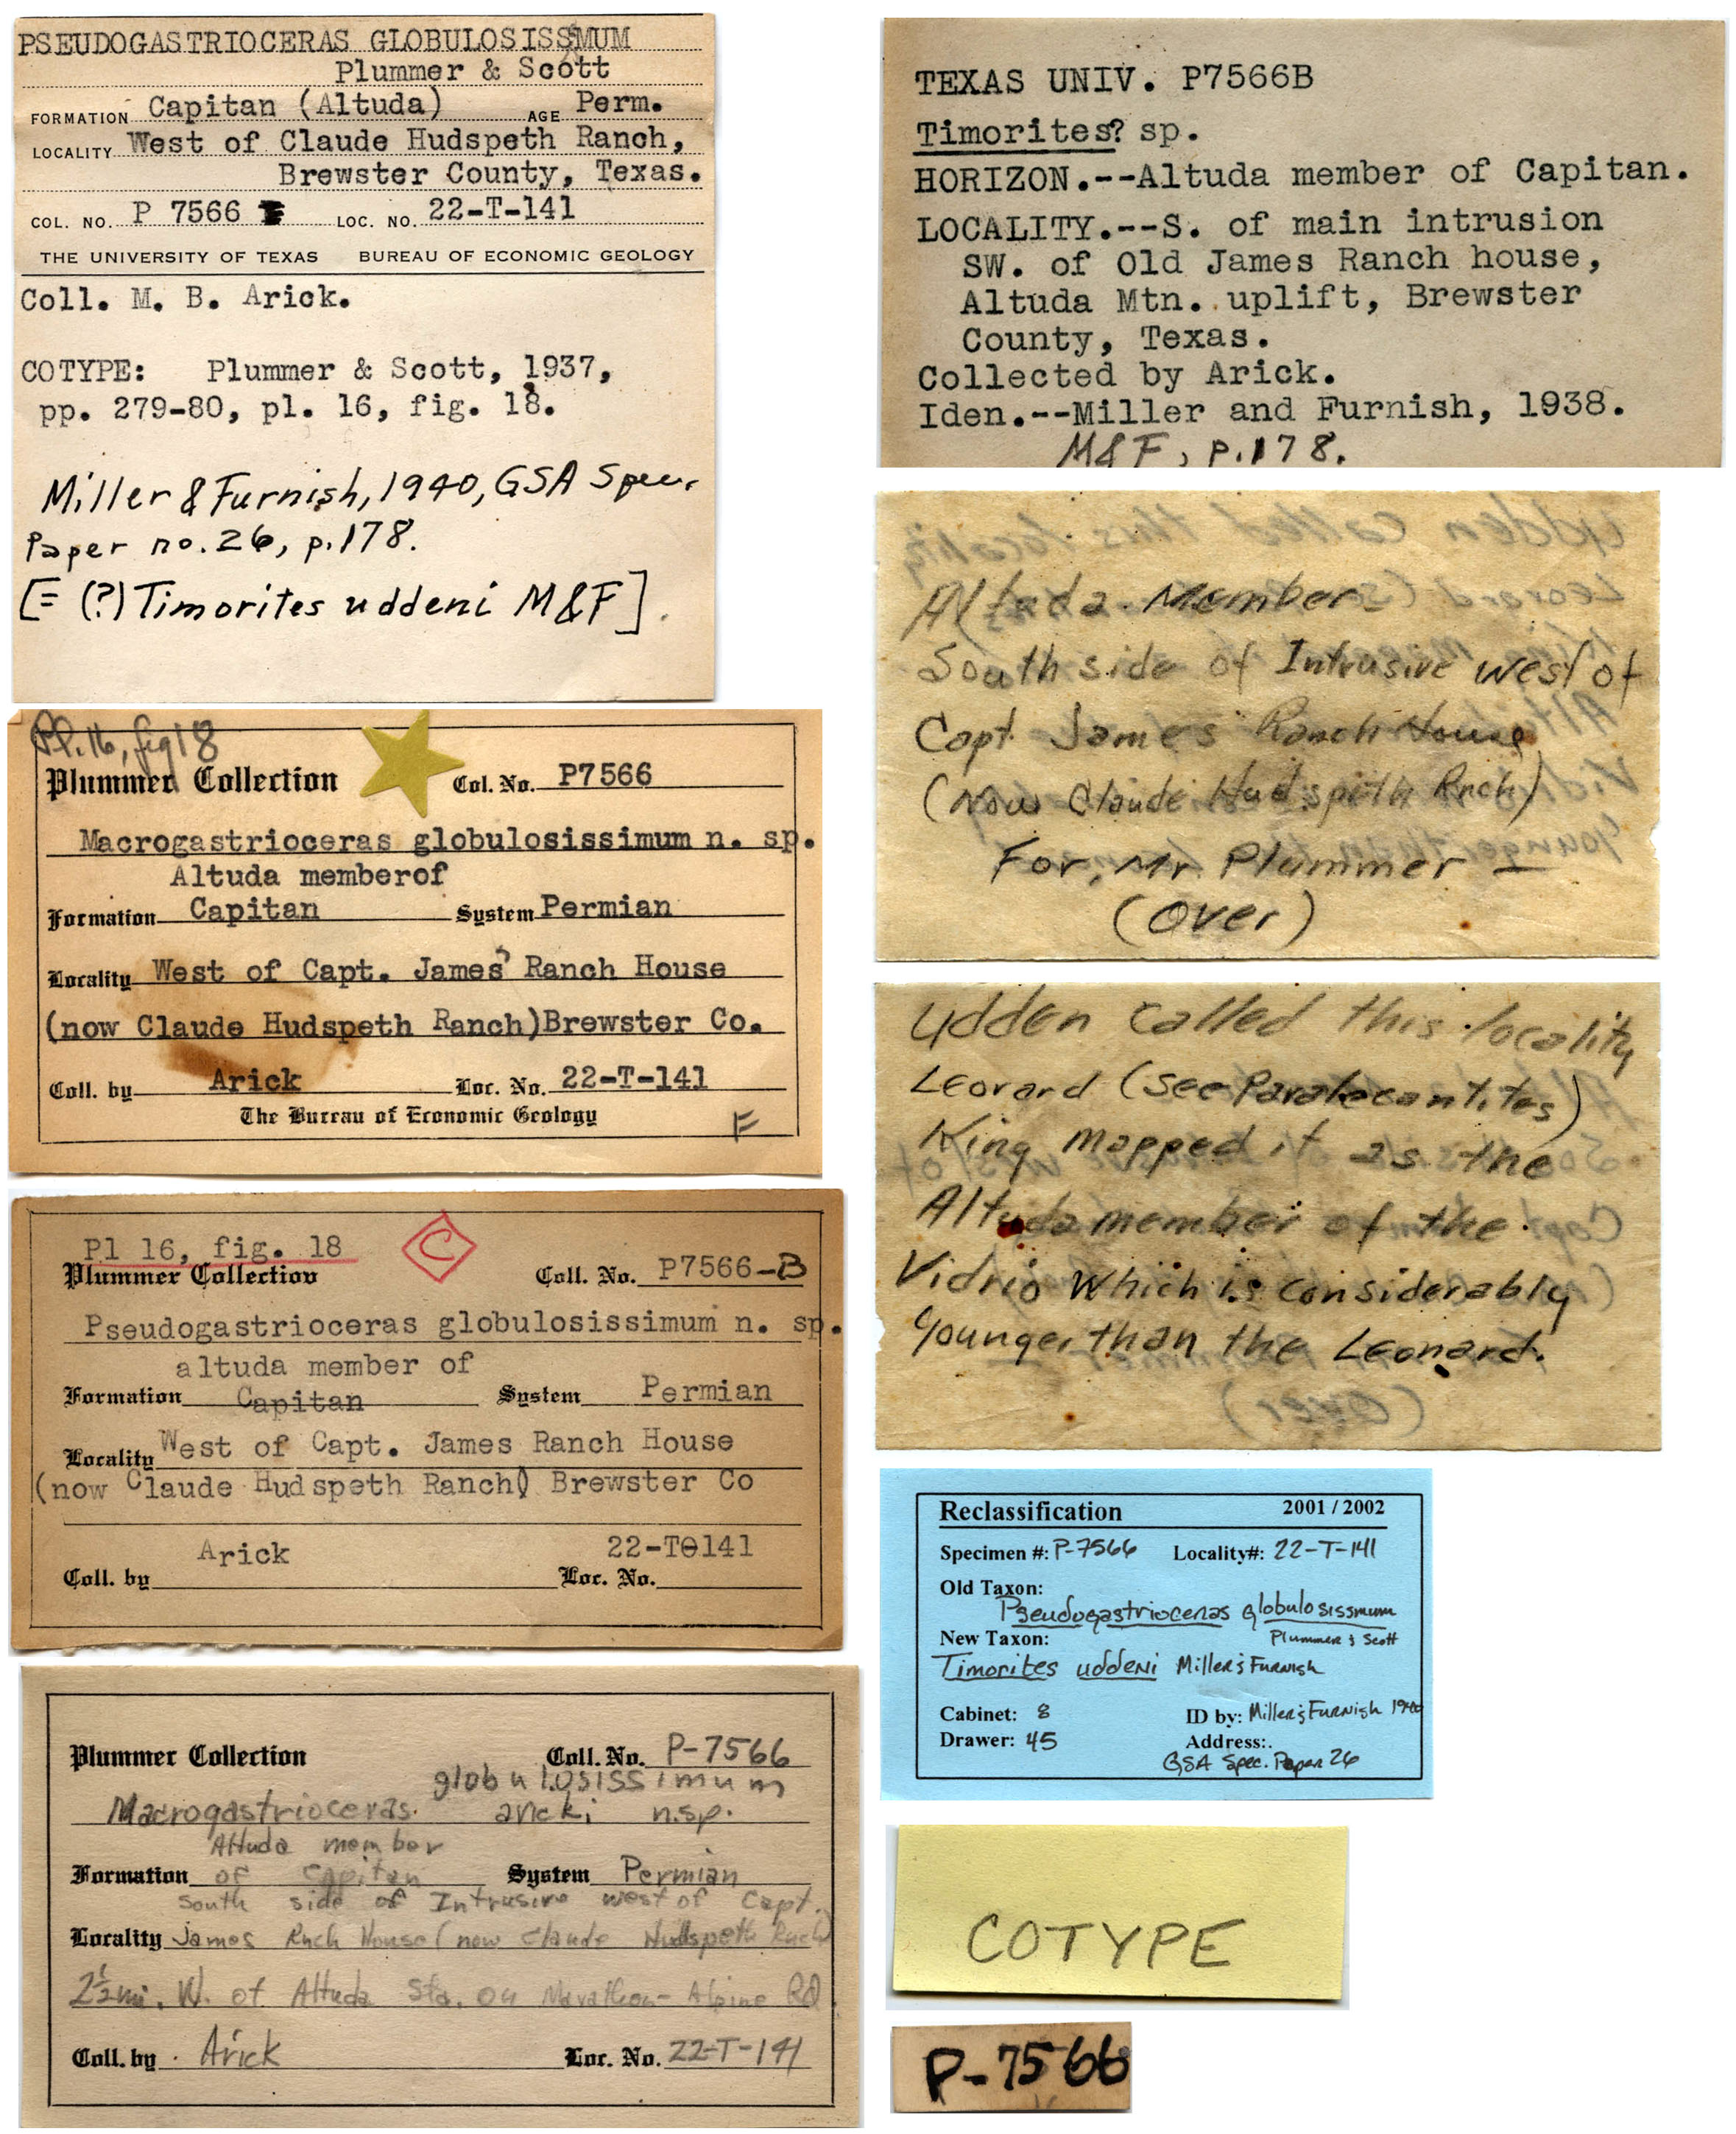 PSEUDOGASTRIOCERAS GLOBULOSISSMUM
Plummer & Scott
FORMATION Capitan (Altuda) AGE Perm.
LOCALITY West of Claude Hudspeth Ranch,
Brewster County, Texas.
COL. NO. P 7566 LOC. NO. 22-T-141
THE UNIVERSITY OF TEXAS BUREAU OF ECONOMIC GEOLOGY
Coll. M. B. Arick.
COTYPE: Plummer & Scott, 1937,
pp. 279-80, pl. 16, fig. 18.
Miller & Furnish, 1940, GSA Spec.
Paper no. 26, p. 178.
[= (?) Timorites uddeni M&F].
Pl. 16, fig 18
Plummer Collection Col. No. P7566
Macrogastrioceras globulosissimum n. sp.
Altuda memberof
Formation Capitan System Permian
Locality West of Capt. James' Ranch House
(now Claude Hudspeth Ranch)Brewster Co.
Coll. by Arick Loc. No. 22-T-141
The Bureau of Economic Geology
F
Pl 16, fig. 18 C
Plummer Collection Coll. No. P7566-B
Pseudogastrioceras globulosissimum n. sp.
altuda member of
Formation Capitan System Permian
Locality West of Capt. James Ranch House
(now Claude Hudspeth Ranch) Brewster Co
Arick 22-T-141
Coll. by Loc. No.
Plummer Collection Coll. No. P-7566
globulosissimum
Macrogastrioceras. aricki n.sp.
Altuda member
Formation of Capitan System Permian
south side of Intrusive west of Capt.
Locality James Rnch House (now Claude Hudspeth Rnch)
2½ mi. W. of Altuda Sta. on Marathon-Alpine RD
Coll. by Arick Loc. No. 22-T-141
TEXAS UNIV. P7566B
Timorites? sp.
HORIZON.--Altuda member of Capitan.
LOCALITY.--S. of main intrusion
SW. of Old James Ranch house,
Altuda Mtn. uplift, Brewster
County, Texas.
Collected by Arick.
Iden.--Miller and Furnish, 1938.
M&F, p. 178.
Altuda Member
South side of Intrusive west of
Capt James Ranch House
(Now Claude Hudspeth Rnch)
For, Mr. Plummer —
(over)
Udden called this locality
Leorard (see Paralecantites)
King mapped it as the
Altuda member of the
Vidrio which is considerably
younger than the Leonard.
Reclassification 2001 / 2002
Specimen #: P-7566 Locality#: 22-T-141
Old Taxon:
Pseudogastrioceras globulosissmum
Plummer & Scott
New Taxon:
Timorites uddeni Miller & Furnish
Cabinet: 8 ID by: Miller & Furnish 1940
Drawer: 45 Address:.
GSA Spec. Paper 26
COTYPE
P-7566